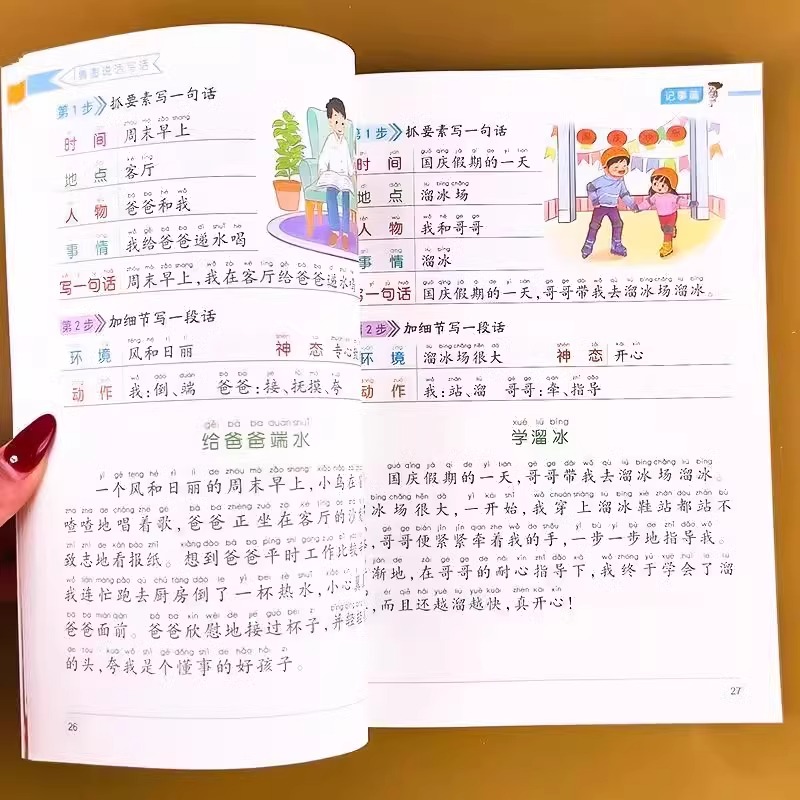 看图说话写话
第1步 抓要素写一句话
时间 周末早上
地点 客厅
人物 爸爸和我
事情 我给爸爸递水喝
写一句话 周末早上,我在客厅给爸爸递水喝
第2步 加细节写一段话
环境 风和日丽 神态 专心致
动作 我:倒、端 爸爸:接、抚摸、夸
gěi bà ba duān shuǐ
给爸爸端水
一个风和日丽的周末早上,小鸟在
喳喳地唱着歌,爸爸正坐在客厅的沙
致志地看报纸。想到爸爸平时工作比较
我连忙跑去厨房倒了一杯热水,小心
爸爸面前。爸爸欣慰地接过杯子,并轻
的头,夸我是个懂事的好孩子。
26
记事篇
第1步 抓要素写一句话
时间 国庆假期的一天
地点 溜冰场
人物 我和哥哥
事情 溜冰
写一句话 国庆假期的一天,哥哥带我去溜冰场溜冰。
第2步 加细节写一段话
环境 溜冰场很大 神态 开心
动作 我:站、溜 哥哥:牵、指导
xué liū bīng
学溜冰
国庆假期的一天,哥哥带我去溜冰场溜冰。
冰场很大,一开始,我穿上溜冰鞋站都站不
,哥哥便紧紧牵着我的手,一步一步地指导我。
渐地,在哥哥的耐心指导下,我终于学会了溜
,而且还越溜越快,真开心!
27